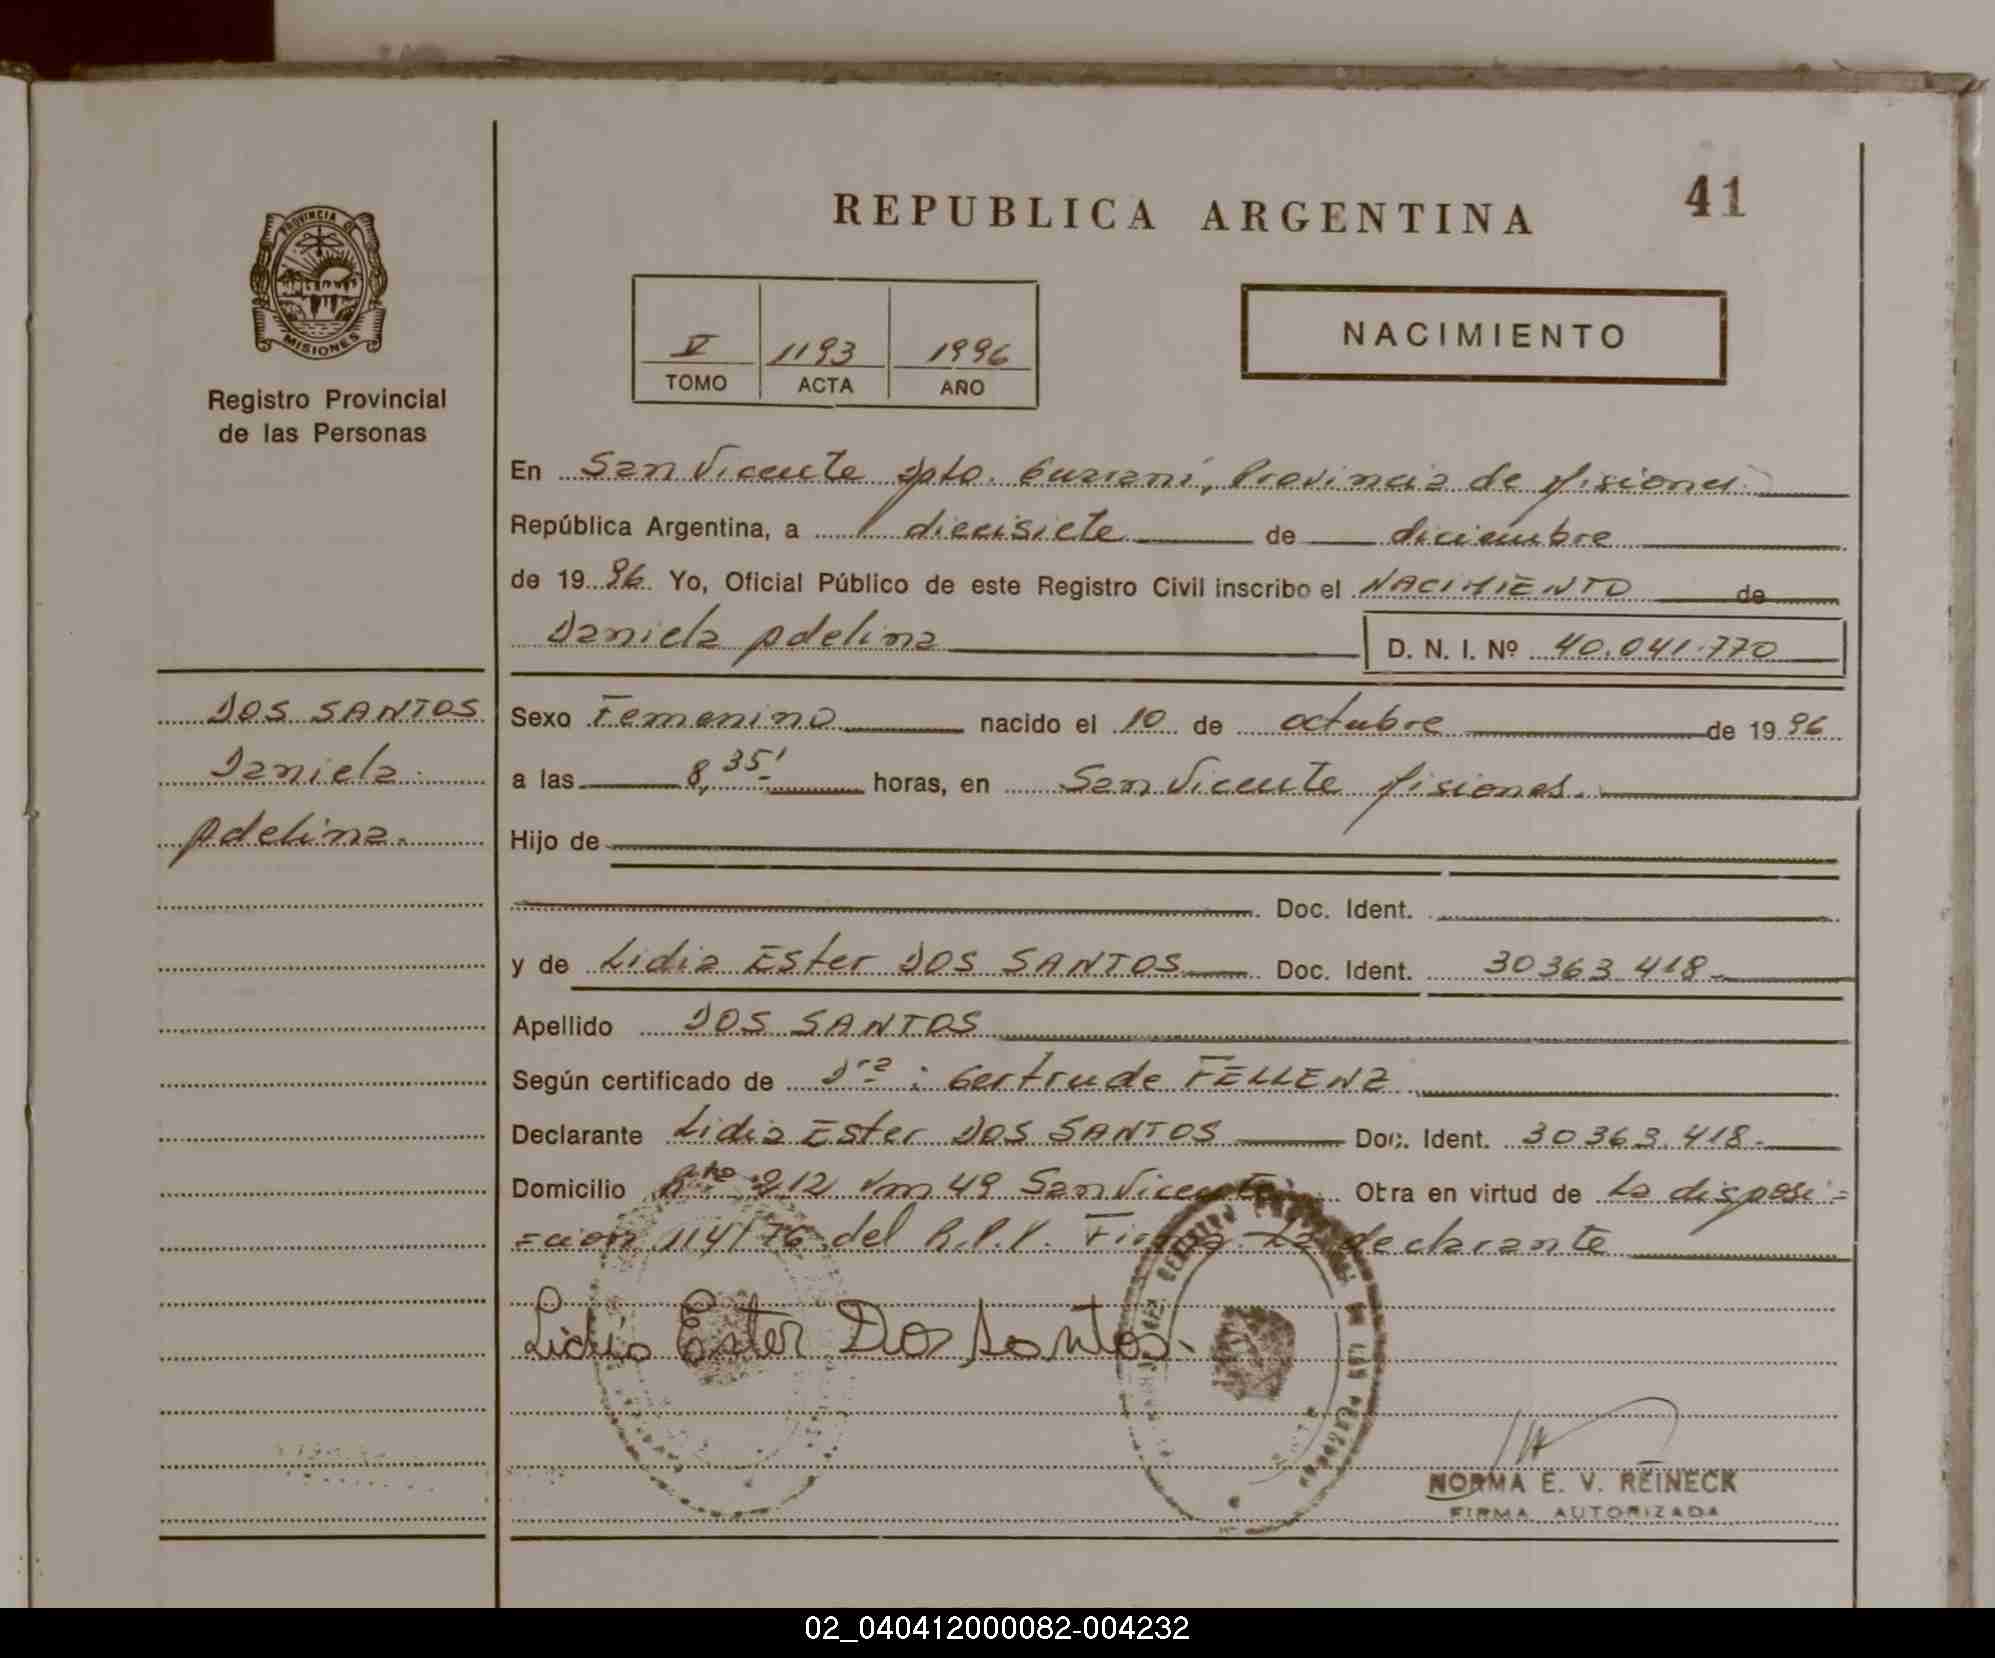 REPUBLICA ARGENTINA
41
PROVINCIA DE MISIONES
Registro Provincial
de las Personas
V 1193 1996
TOMO ACTA AÑO
NACIMIENTO
En San Vicente Dpto. Guarani, Provincia de Misiones
República Argentina, a diecisiete de diciembre
de 1996 Yo, Oficial Público de este Registro Civil inscribo el NACIMIENTO de
Daniela Adelina D. N. I. Nº 40.041.770
DOS SANTOS
Daniela
Adelina.
Sexo Femenino nacido el 10 de octubre de 1996
a las 8,35' horas, en San Vicente Misiones.
Hijo de
Doc. Ident.
y de Lidia Ester DOS SANTOS Doc. Ident. 30363.418-
Apellido DOS SANTOS
Según certificado de Dra: Gertrude FELLENZ
Declarante Lidia Ester DOS SANTOS Doc. Ident. 30363.418-
Domicilio 212 Km 49 San Vicente Otra en virtud de La disposi=
=cion 114/76 del R.P.P. Firma La declarante
Lidia Ester Dos Santos.
NORMA E. V. REINECK
FIRMA AUTORIZADA
02_040412000082-004232